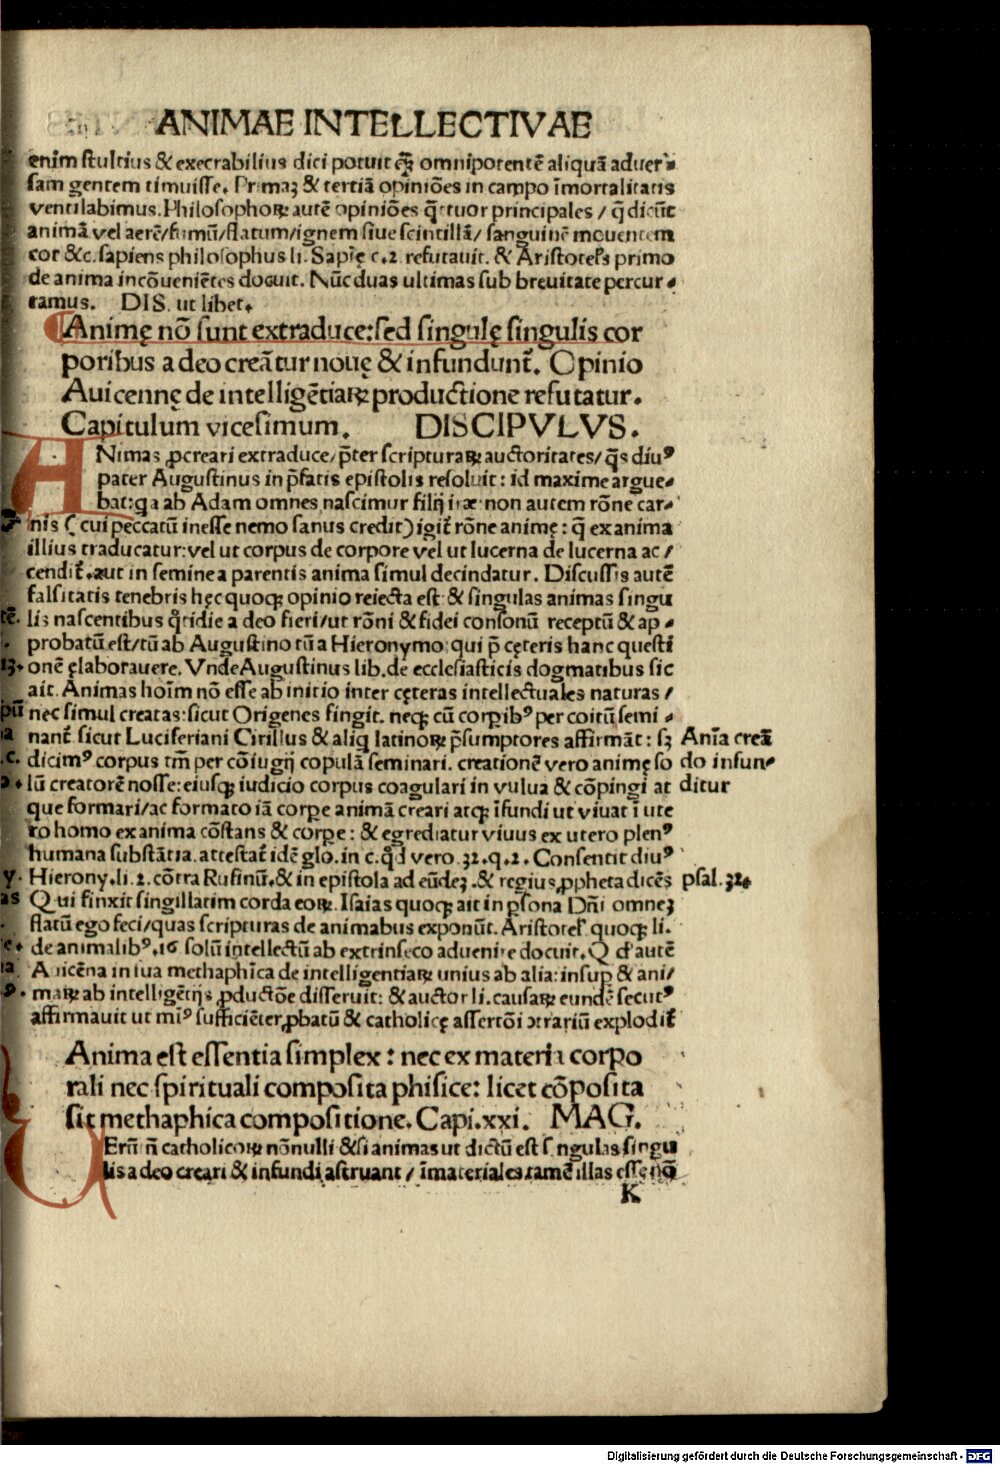 ANIMAE INTELLECTIVAE
enim stultius & execrabilius dici potuit qᷓ omnipotentē aliquā aduer⸗
sam gentem timuisse. Primaꝫ & tertiā opiniōes in campo īmortalitatis
ventilabimus. Philosophoꝝ autē opiniōes q̄tuor principales / q̄ dicūt
animā vel aerē/fumū/flatum/ignem siue scintillā/ sanguinē mouentem
cor &c. sapiens philosophus li. Sapię c.2 refutauit. & Aristotel's primo
de anima incōueniētes docuit. Nūc duas ultimas sub breuitate percur⸗
ramus. DIS. ut libet.
Animę nō sunt extraduce: sed singulę singulis cor
poribus a deo creātur nouę & infundunt᷑. Opinio
Auicennę de intelligētiaꝝ productione refutatur.
Capitulum vicesimum. DISCIPVLVS.
ANimas ꝓcreari extraduce/ p̄ter scripturaꝝ auctoritates/ q̄s diuꝰ
pater Augustinus in p̄fatis epistolis resoluit: id maxime argue⸗
bat: qa ab Adam omnes nascimur filij iræ non autem rōne car⸗
nis ( cui peccatū inesse nemo sanus credit) igit᷑ rōne animę: q̄ ex anima
illius traducatur: vel ut corpus de corpore vel ut lucerna de lucerna ac/
cendit᷑. aut in semine a parentis anima simul decindatur. Discussis autē
falsitatis tenebris hęc quoqꝫ opinio reiecta est & singulas animas singu
lis nascentibus q̄tidie a deo fieri/ut rōni & fidei consonū receptū & ap⸗
probatū est/tū ab Augustino tū a Hieronymo: qui p̄ cęteris hanc questi
onē ęlaborauere. Vnde Augustinus lib. de ecclesiasticis dogmatibus sic
ait. Animas hoīm nō esse ab initio inter cęteras intellectuales naturas /
nec simul creatas: sicut Origenes fingit. neqꝫ cū corꝑibꝰ per coitū semi⸗
nant᷑ sicut Luciferiani Cirillus & aliq latinoꝝ p̄sumptores affirmāt: sꝫ
Anīa creā
dicimꝰ corpus tm̄ per cōiugij copulā seminari. creationē vero animę so
do infun⸗
lū creatorē nosse: eiusqꝫ iudicio corpus coagulari in vulua & cōpingi at
ditur
que formari/ac formato iā corꝑe animā creari atqꝫ īfundi ut viuat ī ute
ro homo ex anima cōstans & corꝑe: & egrediatur viuus ex utero plenꝰ
humana substātia. attestat᷑ idē glo. in c. qd̄ vero. 32. q. 2. Consentit diuꝰ
Hierony. li. 2. cōtra Rufinū. & in epistola ad eūdeꝫ. & regius ꝓpheta dicēs
psal. 32.
Qui finxit singillatim corda eoꝝ. Isaias quoqꝫ ait in ꝑsona Dn̄i omneꝫ
flatū ego feci/quas scripturas de animabus exponūt. Aristotel' quoqꝫ li.
de animalibꝰ. 16 solū intellectū ab extrinseco aduenire docuit. Qd' autē
Auicēna in sua methaphīca de intelligentiaꝝ unius ab alia: insuꝑ & ani/
maꝝ ab intelligētijs ꝓductōe disseruit: & auctor li. causaꝝ eundē secutꝰ
affirmauit ut miꝰ sufficiēter ꝓbatū & catholicę assertōi ↄtrariū explodit᷑
Anima est essentia simplex: nec ex materia corpo
rali nec spirituali composita phisice: licet cōposita
sit methaphica compositione. Capi. xxi. MAG.
VErū n̄ catholicoꝝ nōnulli & si animas ut dictū est singulas singu
lis a deo creari & infundi astruant / īmateriales tamē illas esse
K
Digitalisierung gefördert durch die Deutsche Forschungsgemeinschaft - DFG